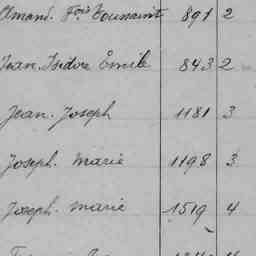 Amand. Fois Toussaint 891 2
Jean. Isidore Émile 843 2
Jean. Joseph 1181 3
Joseph. Marie 1198 3
Joseph. Marie 1519 4